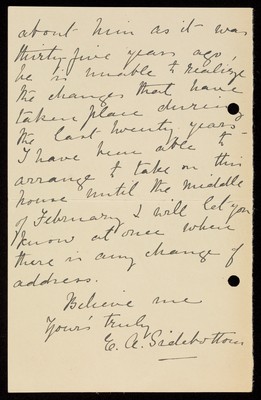 about him as it was
thirty-five years ago
he is unable to realize
the changes that have
taken place during
the last twenty years -
I have been able to
arrange to take on this
house until the middle
of February I will let you
know at once when
there is any change of
address.
Believe me
Your's truly
E. A. Sidebottom